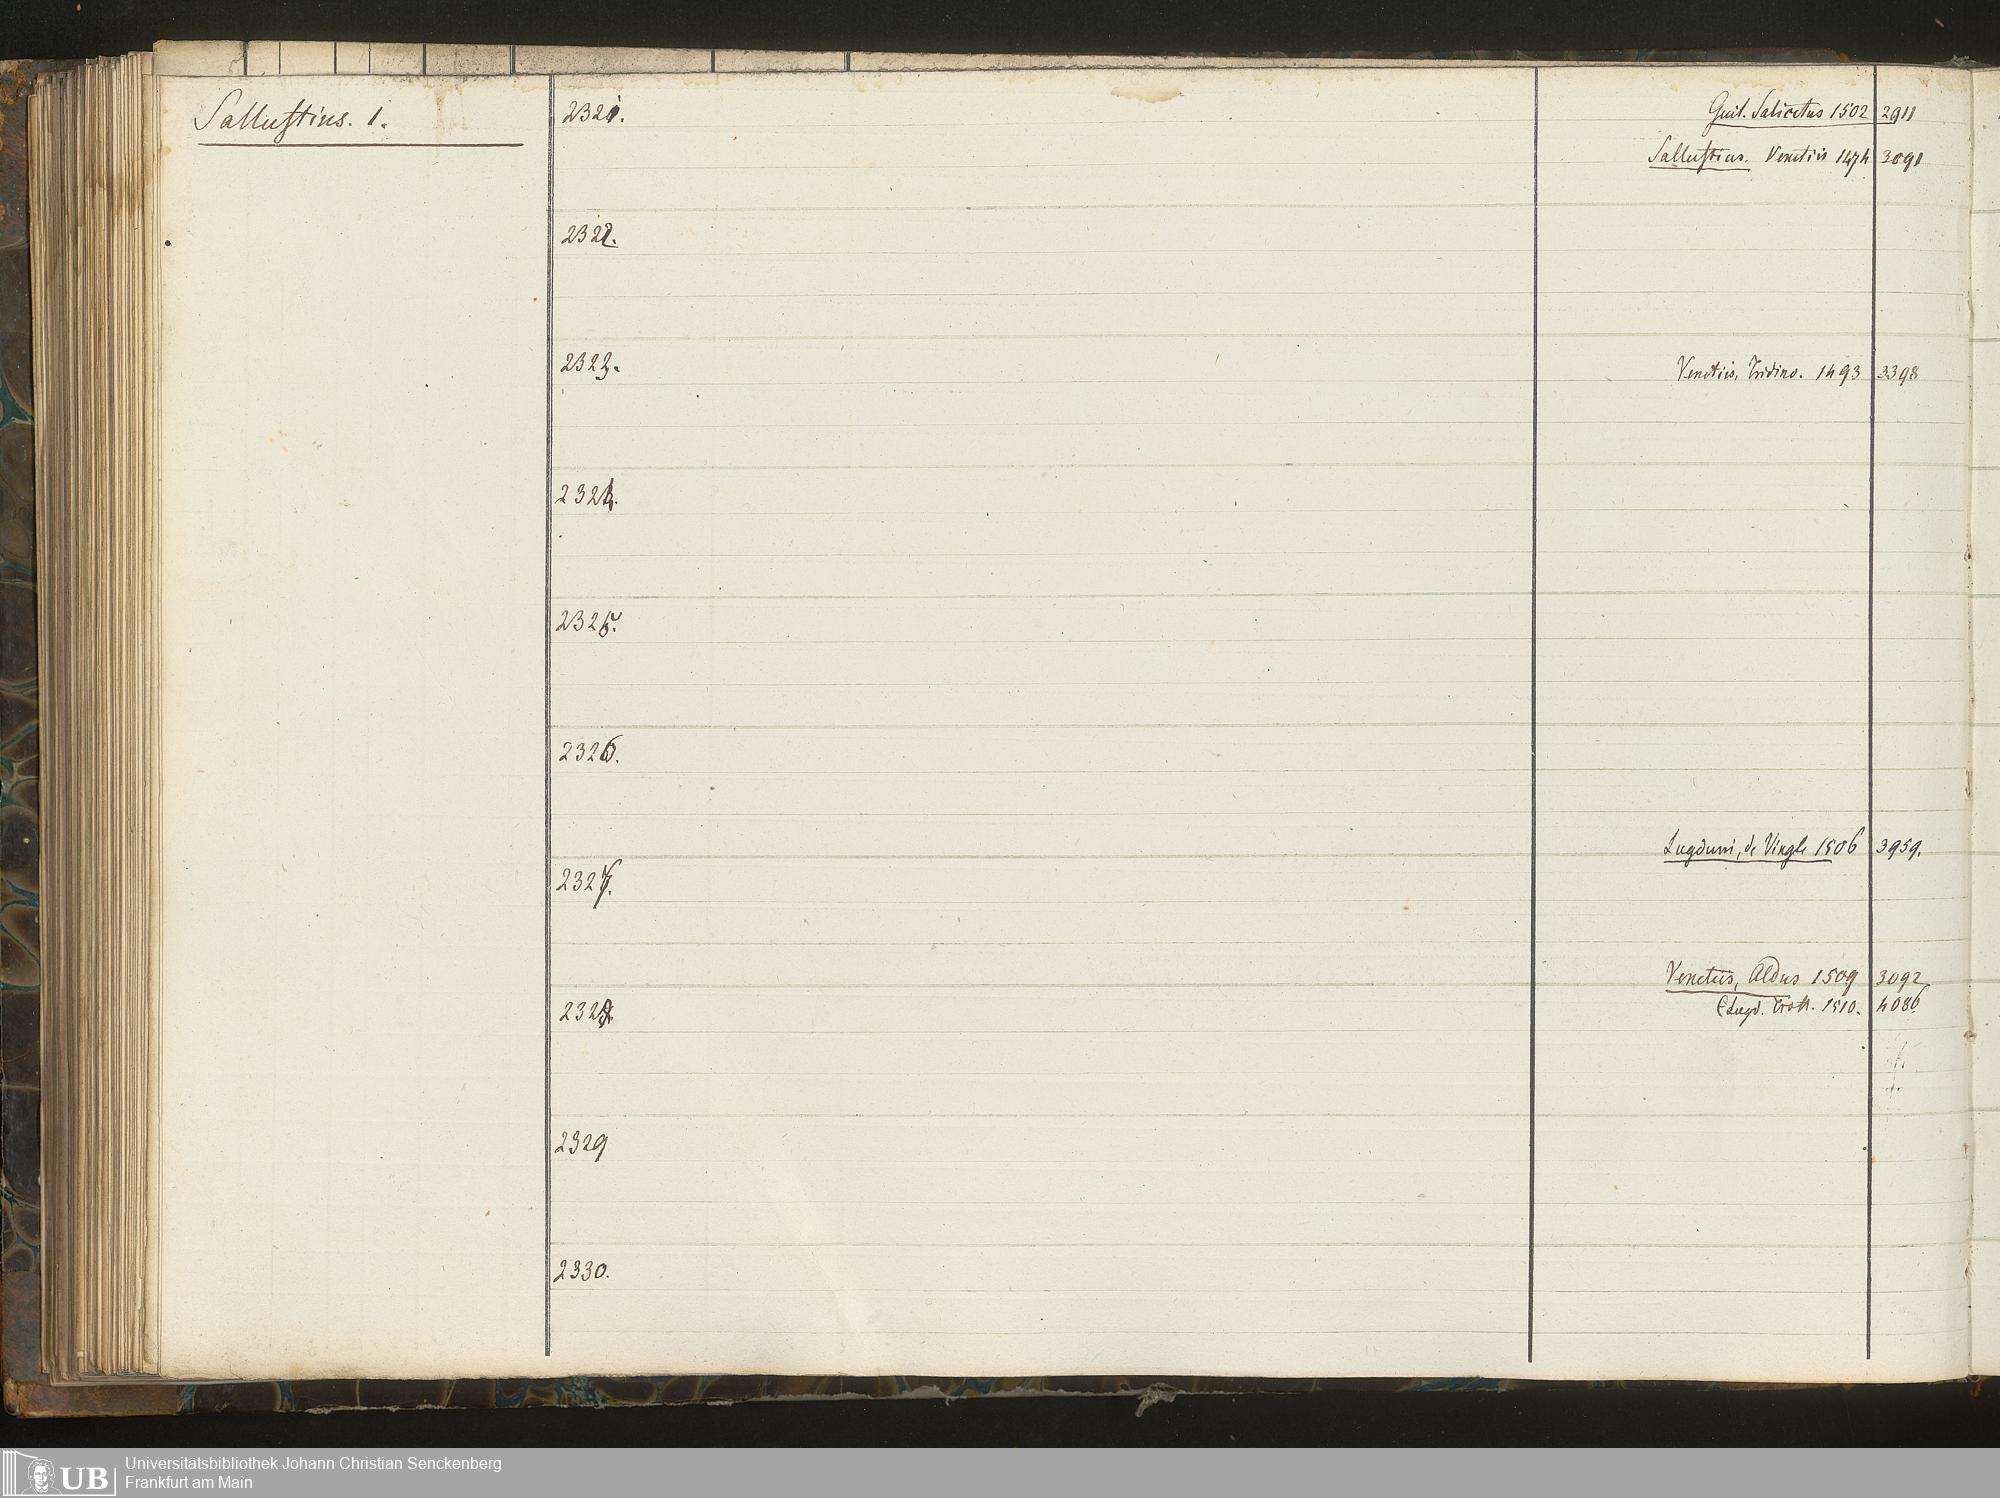 Sallustius. 1.
2321.
Guil. Salicetus 1502 2911
Sallustius. Venetiis 1474 3091
2322.
2323.
Venetiis, Tridino. 1493 3398
2324.
2325.
2326.
Lugduni, de Vingle 1506 3959.
2327.
Venetiis, Aldus 1509 3092
2328.
(Lugd. Trott. 1510. 4086.
2329
2330.
UB
Universitätsbibliothek Johann Christian Senckenberg
Frankfurt am Main